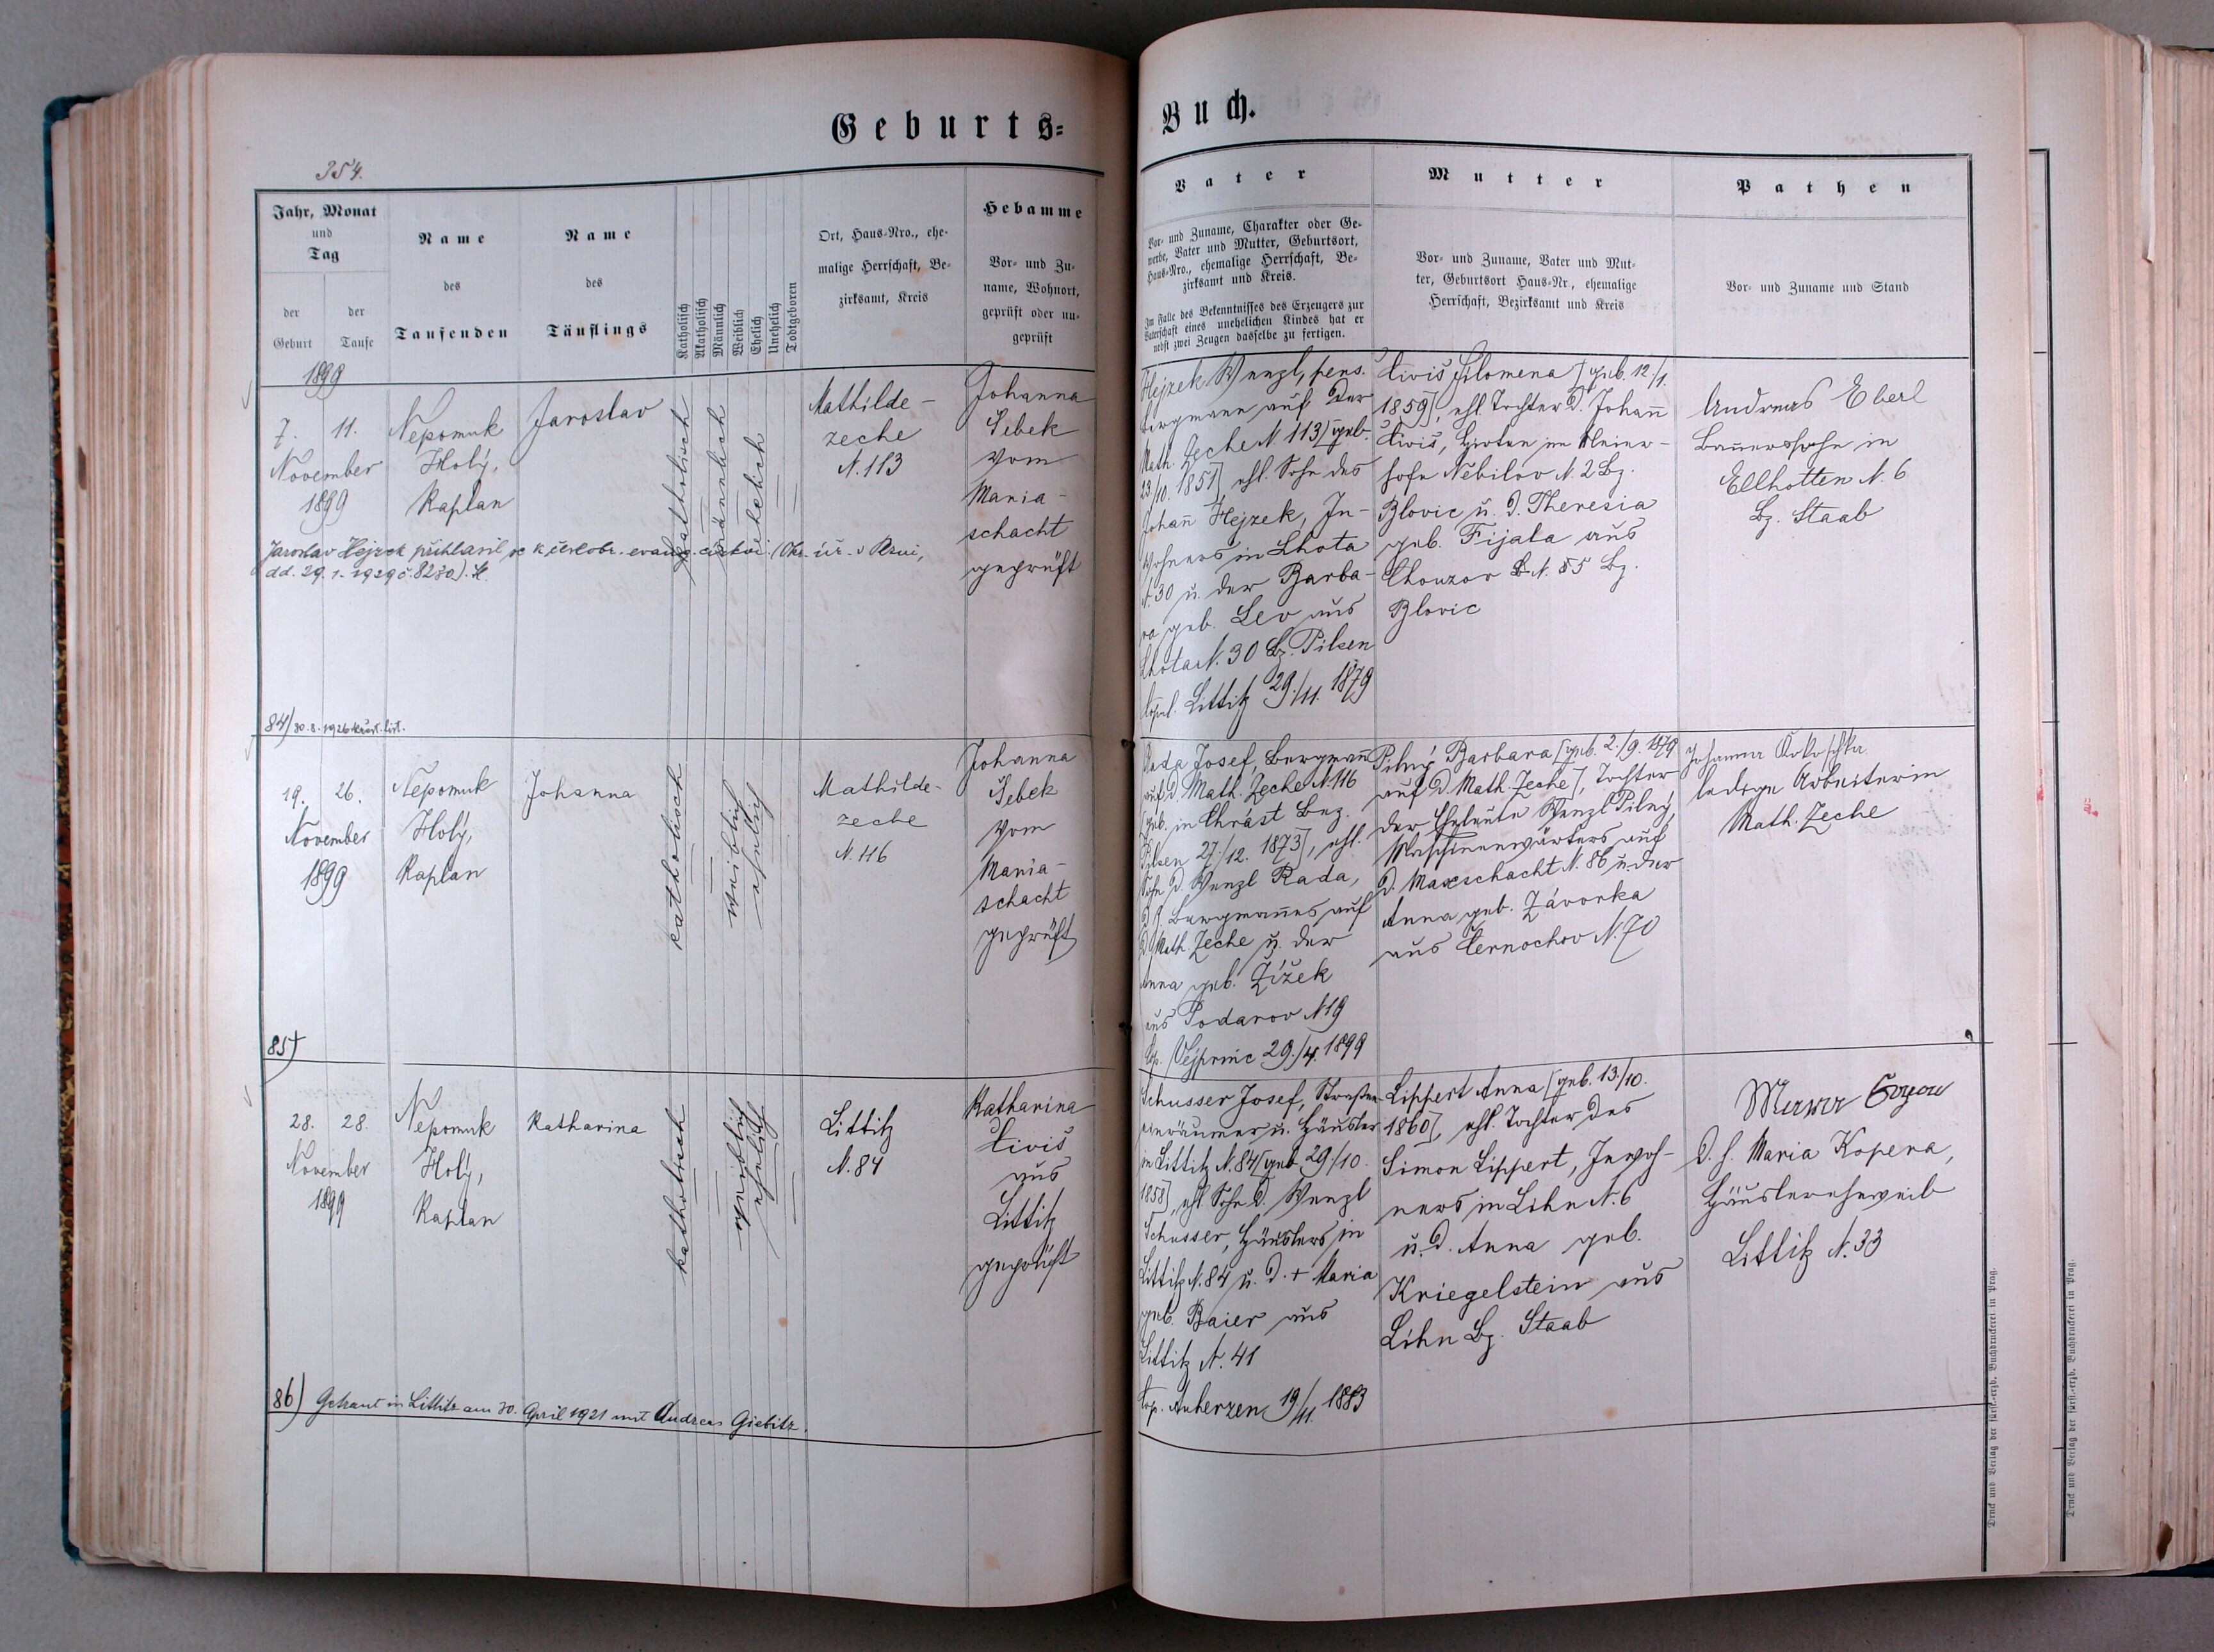 Geburts-
Buch.
354.
Jahr, Monat
und
Tag
der
Geburt
der
Taufe
Name
des
Taufenden
Name
des
Täuflings
Katholisch
Akatholisch
Männlich
Weiblich
Ehelich
Unehelich
Todtgeboren
Ort, Haus-Nro., ehe-
malige Herrschaft, Be-
zirksamt, Kreis
Hebamme
Vor- und Zu-
name, Wohnort,
geprüft oder un-
geprüft
Vater
Vor- und Zuname, Charakter oder Ge-
werbe, Vater und Mutter, Geburtsort,
Haus-Nro., ehemalige Herrschaft, Be-
zirksamt und Kreis.
Im Falle des Bekenntnisses des Erzeugers zur
Vaterschaft eines unehelichen Kindes hat er
nebst zwei Zeugen dasselbe zu fertigen.
Mutter
Vor- und Zuname, Vater und Mut-
ter, Geburtsort Haus-Nr, ehemalige
Herrschaft, Bezirksamt und Kreis
Pathen
Vor- und Zuname und Stand
1899
7.
11.
November
1899
Nepomuk
Holý,
Kaplan
Jaroslav
katholisch
männlich
ehelich
Mathilde-
zeche
N. 113
Johanna
Šebek
vom
Maria-
schacht
geprüft
Hejzek Wenzl, pens.
Bergmann auf der
Math. Zeche N 113 [geb.
23/10. 1851] ehl. Sohn des
Johann Hejzek, In-
wohners in Lhota
N. 30 u. der Barba-
ra geb. Lev aus
Lhota N. 30 Bz. Pilsen
Copul. Littitz 29./11. 1879
Živis Filomena [geb. 12./1.
1859], ehl. Tochter d. Johann
Živis, Hirten im Meier-
hofe Nebilov N 2 Bz.
Blovic u. d. Theresia
geb. Fijala aus
Chouzov N. 55 Bz.
Blovic
Andreas Eberl
Bauerssohn in
Ellhotten N. 6
Bz. Staab
Jaroslav Hejzek přihlásil se k českobr. evang. církvi (Okr. úř. v Plzni,
dd. 29. 1. 1929 č. 8280).
84) 30.8.1926 křest. list.
19.
26.
November
1899
Nepomuk
Holý,
Kaplan
Johanna
katholisch
weiblich
ehelich
Mathilde-
zeche
N. 116
Johanna
Šebek
vom
Maria-
schacht
geprüft
Rada Josef, Bergmann
auf d. Math. Zeche N. 116
[geb. in Chrást Bez.
Pilsen 27./12. 1873], ehl.
Sohn d. Wenzl Rada,
Bergmannes auf
d. Math. Zeche u. der
Anna geb. Žižek
aus Podarov N 19
Cop. Vejprnic 29./4. 1899
Pilný Barbara [geb. 2./9. 1879
auf d. Math. Zeche], Tochter
der Eheleute Wenzl Pilný,
Maschinenwärters auf
d. Maxschacht N. 86 u. der
Anna geb. Závorka
aus Černochov N. 70
Johanna Kokoschka
ledige Arbeiterin
Math. Zeche
85)
28.
28.
November
1899
Nepomuk
Holý,
Kaplan
Katharina
katholisch
weiblich
ehelich
Littitz
N. 84
Katharina
Živis
aus
Littitz
geprüft
Schusser Josef, Straßen-
einräumer u. Häusler
in Littitz N. 84 [geb. 29./10.
1858], ehl. Sohn d. Wenzl
Schusser, Häuslers in
Littitz N. 84 u. d. + Maria
geb. Baier aus
Littitz N. 41
Cop. Auherzen 19/11. 1883
Lippert Anna [geb. 13./10.
1860], ehl. Tochter des
Simon Lippert, Inwoh-
ners in Lihn N. 6
u. d. Anna geb.
Kriegelstein aus
Lihn Bz. Staab
d. h. Maria Kopera,
Häuslerseheweib
Littitz N. 33
86) Getraut in Littitz am 30. April 1921 mit Andreas Giebitz.
Druck und Verlag der fürst.-erzb. Buchdruckerei in Prag.
Druck und Verlag der fürst.-erzb. Buchdruckerei in Prag.